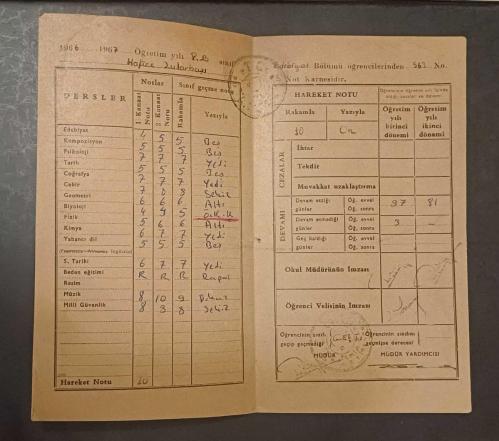 1966 1967 Öğretim yılı sınıf Edebiyat Bölümü öğrencilerinden 563 No.
Not Karnesidir.
DERSLER
Notlar
Sınıf geçme notu
1 Kanaat Notu
2 Kanaat Notu
Rakamla
Yazıyla
Edebiyat 4 5 5 Beş
Kompozisyon 5 5 5 Beş
Psikoloji 7 7 7 Yedi
Tarih 5 5 5 Beş
Coğrafya 7 7 7 Yedi
Cebir 7 8 8 Sekiz
Geometri 6 6 6 Altı
Biyoloji 4 9 5
Fizik 5 6 6 Altı
Kimya 6 7 7 Yedi
Yabancı dil 5 5 5 Beş
S. Tarihi 6 7 7 Yedi
Beden eğitimi R R R Rapor
Resim
Müzik 8 10 9 Dokuz
Milli Güvenlik 8 3 8 Sekiz
Hareket Notu 10
HAREKET NOTU
Rakamla
Yazıyla
10 On
Öğretim yılı birinci dönemi
Öğretim yılı ikinci dönemi
CEZALAR
İhtar
Tekdir
Muvakkat uzaklaştırma
DEVAMI
Devam ettiği günler
Öğ. evvel 97 81
Öğ. sonra
Devam etmediği günler
Öğ. evvel 3 —
Öğ. sonra
Geç kaldığı günler
Öğ. evvel
Öğ. sonra
Okul Müdürünün İmzası
Öğrenci Velisinin İmzası
Öğrencinin sınıf geçip geçmediği
Öğrencinin sınıfını geçmişse derecesi
MÜDÜR
MÜDÜR YARDIMCISI